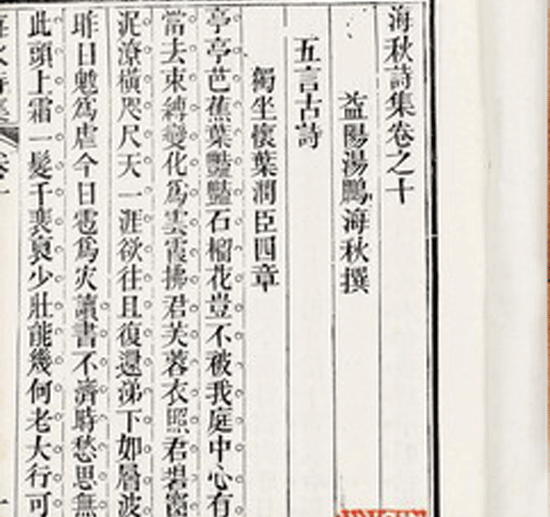 海秋詩集卷之十
益陽湯鵬海秋撰
五言古詩
獨坐懷葉潤臣四章
亭亭芭蕉葉豔豔石榴花豈不被我庭中心有
當去束縛變化為雲霞拂君芙蓉衣照君碧窗
泥潦橫咫尺天一涯欲往且復還涕下如層波
昨日魃為虐今日雹為灾讀書不濟時愁思無
此頭上霜一髮千裴裒少壯能幾何老大行可